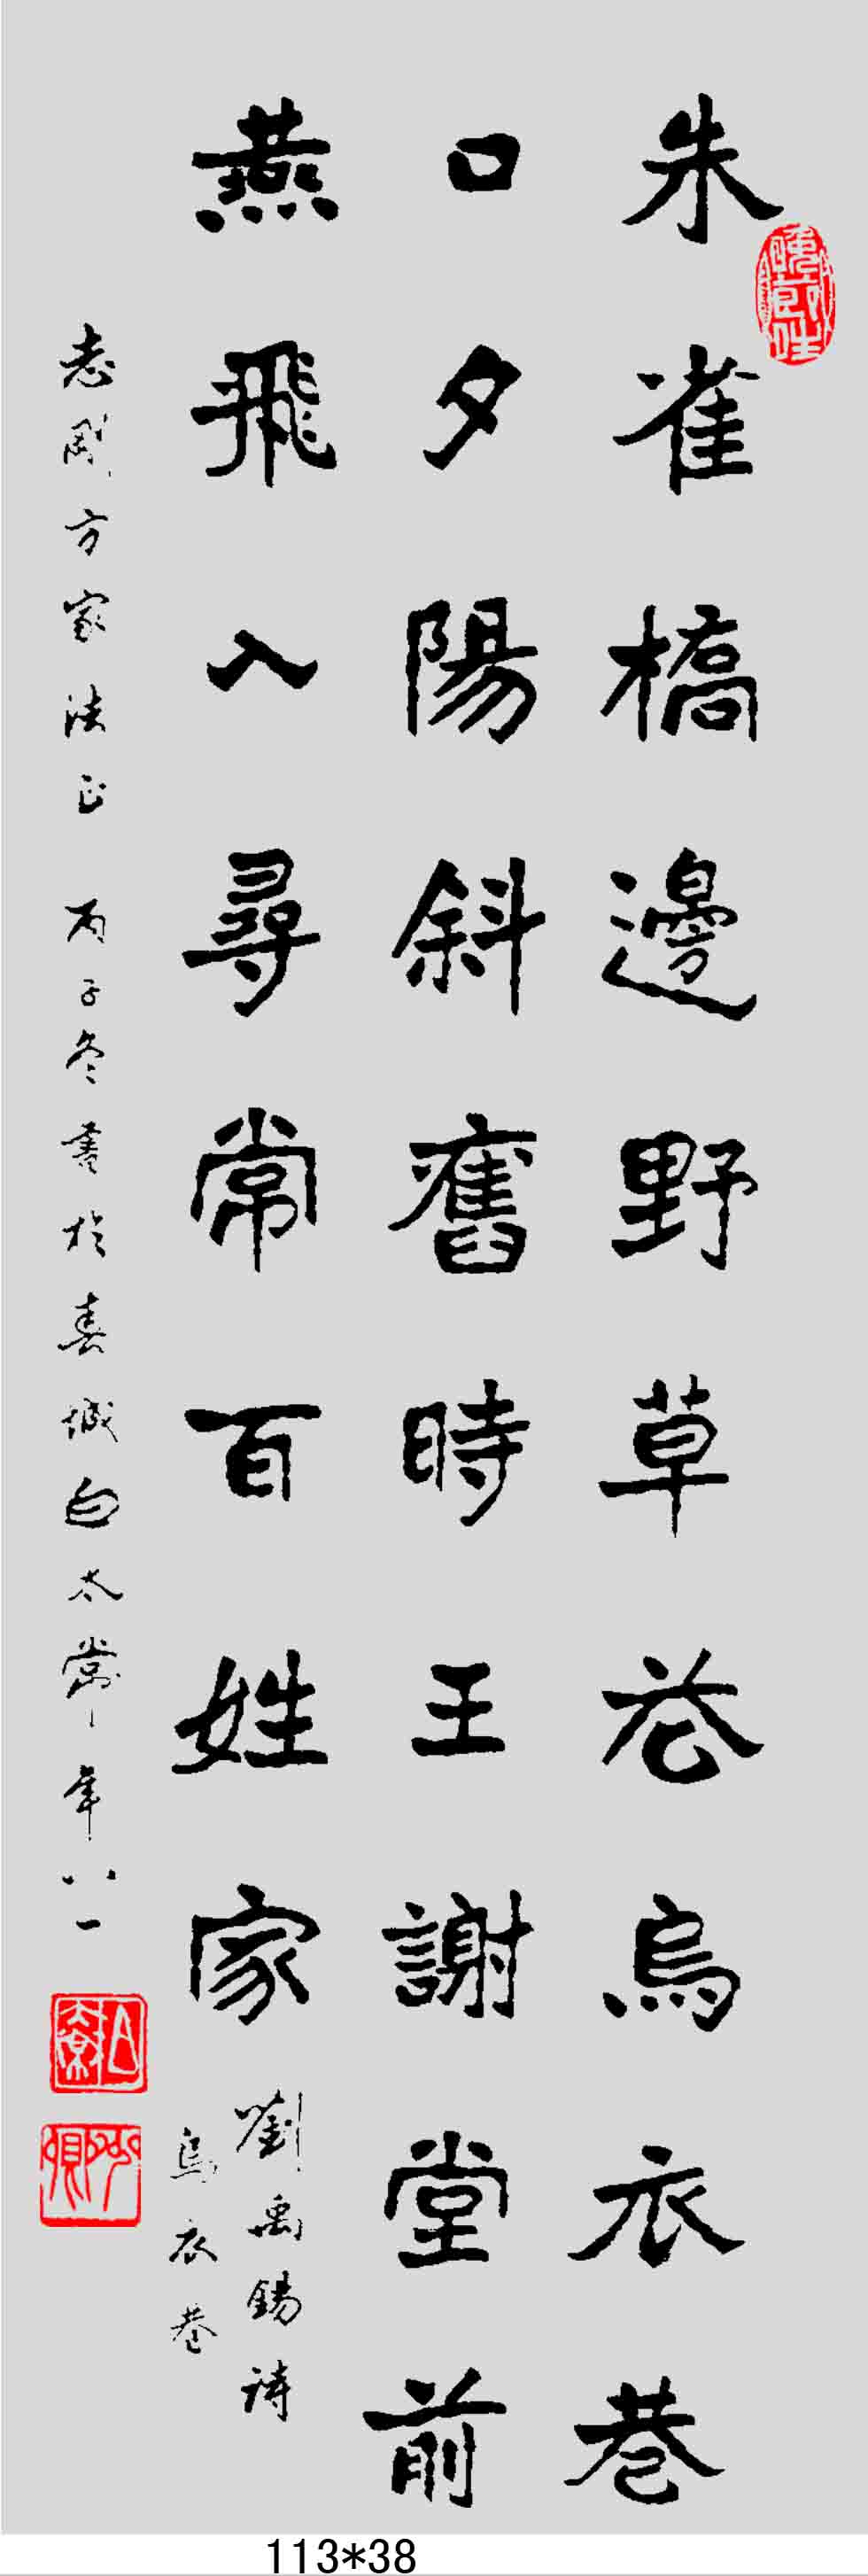 朱雀橋邊野草花烏衣巷
口夕陽斜舊時王謝堂前
燕飛入尋常百姓家
劉禹錫詩
烏衣巷
志剛方家法正 丙子冬書於春城白太常年八一
113*38